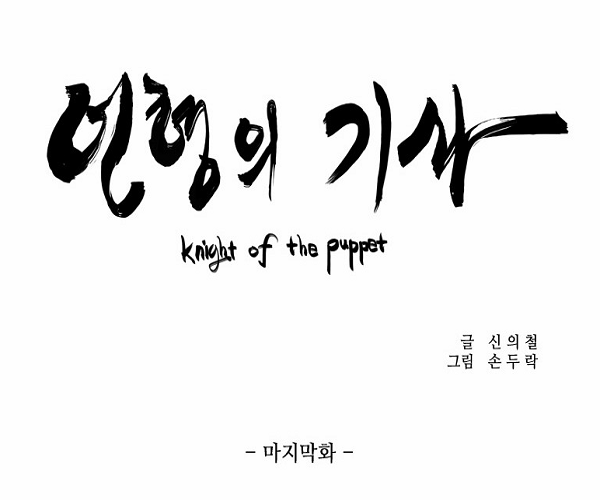 인형의 기사
knight of the puppet
글 신의철
그림 손두락
- 마지막화 -